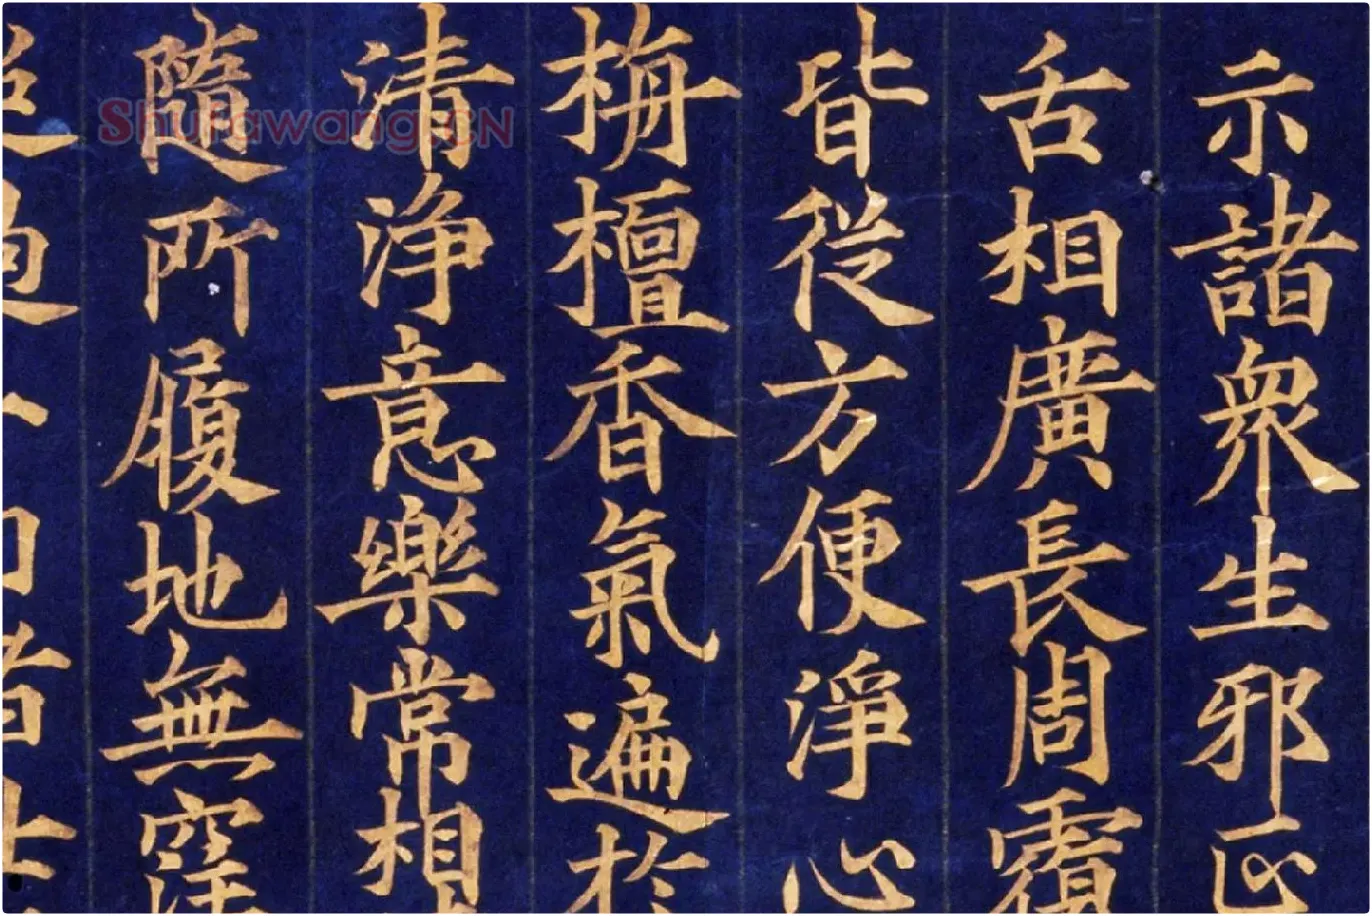 示諸眾生邪正
舌相廣長周覆
皆從方便淨心
栴檀香氣遍於
清淨意樂常相
隨所履地無窪
Shufawang.CN